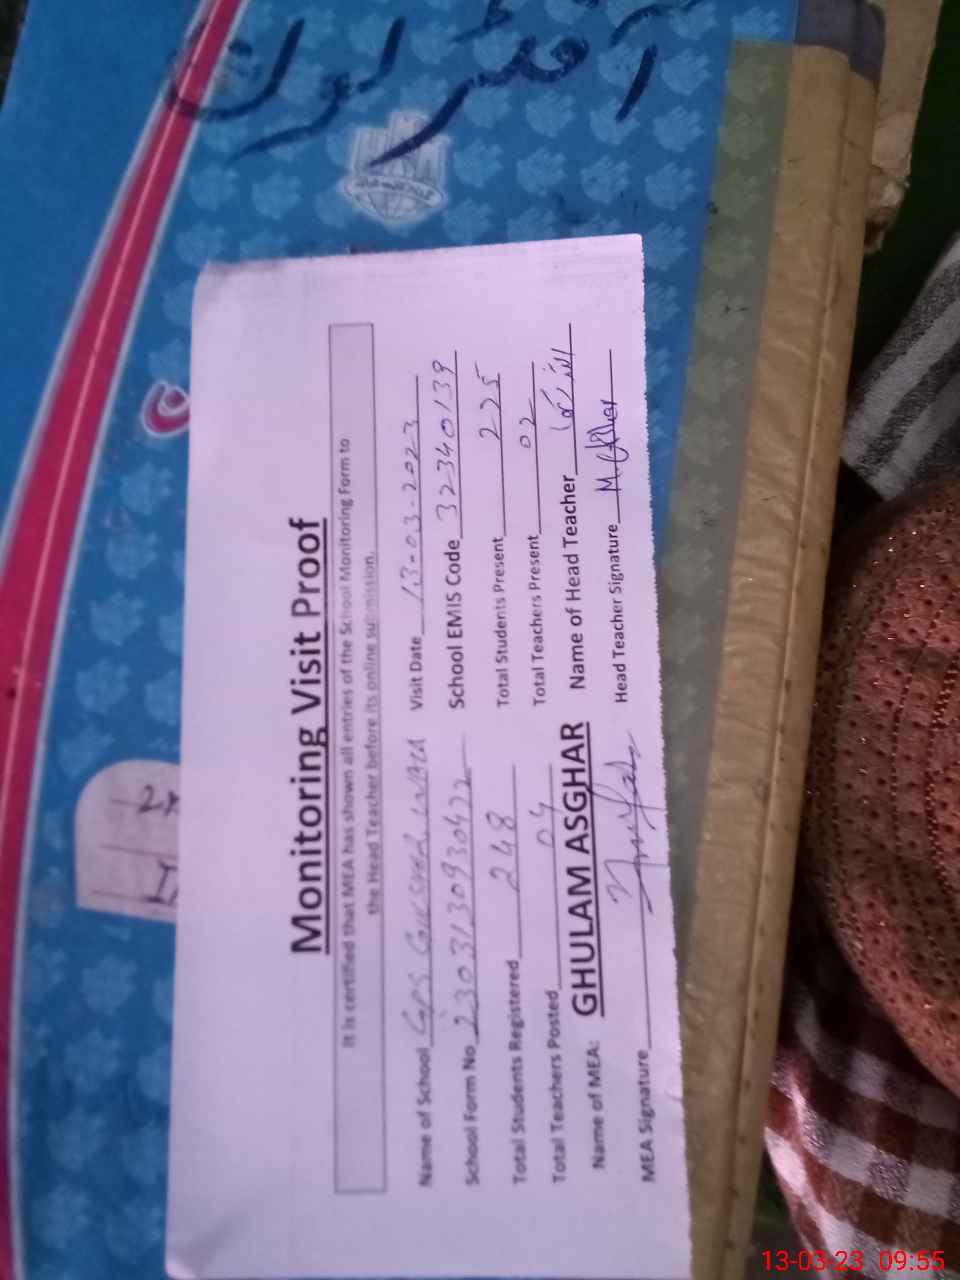 آفٹر نون
Monitoring Visit Proof
It is certified that MEA has shown all entries of the School Monitoring Form to
the Head Teacher before its online submission.
Name of School GPS Visit Date 13-03-2023
School Form No 23031309930422 School EMIS Code 32340139
Total Students Registered 248 Total Students Present 225
Total Teachers Posted 04 Total Teachers Present 02
Name of MEA: GHULAM ASGHAR Name of Head Teacher
MEA Signature Head Teacher Signature
13-03-23 09:55